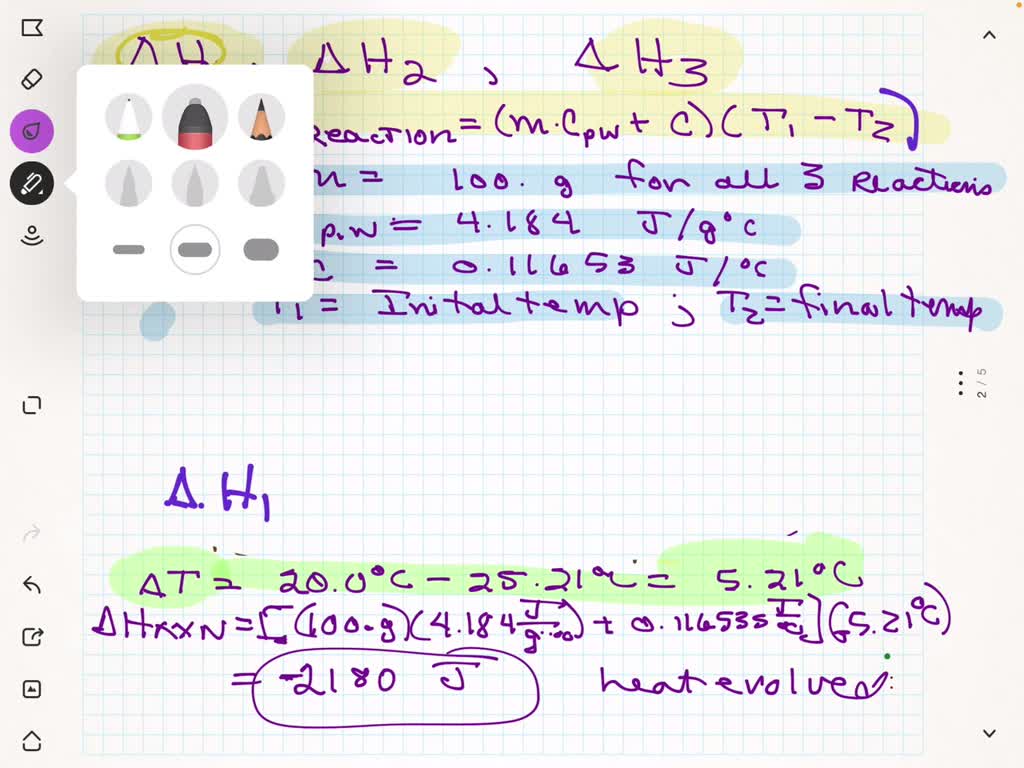 ΔH , ΔH2 , ΔH3
Reaction = (m·Cpw + C)(T1 - T2)
= 100. g for all 3 Reactions
p,w = 4.184 J/g°C
C = 0.11653 J/°C
T1 = Inital temp ; T2 = final temp
2/5
Δ.H1
ΔT = 20.0°C - 25.21°C = 5.21°C
ΔHRXN = [(100.g)(4.184 J/g°C) + 0.116535 J/°C](-5.21°C)
= -2180 J heat evolved